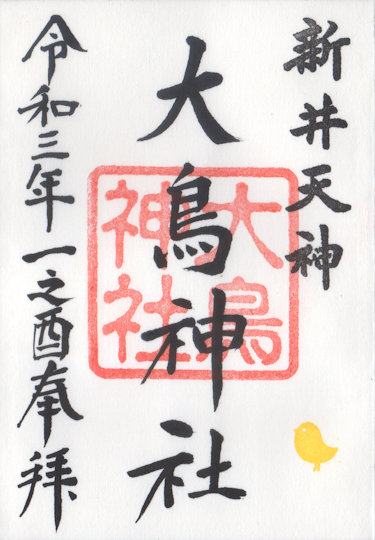 新井天神
大鳥神社
大鳥神社
令和三年一之酉奉拝